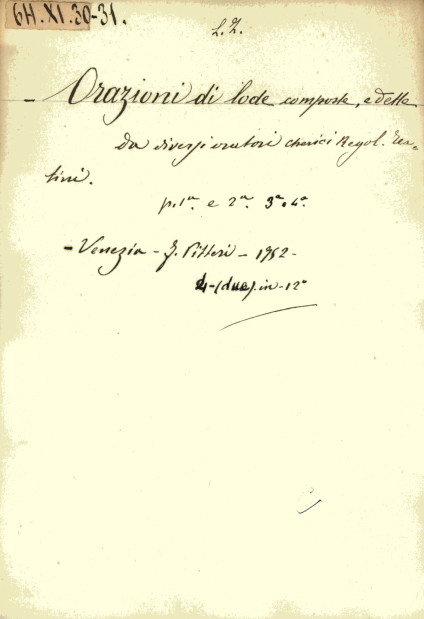 6H.XI.30-31.
L.Z.
— Orazioni di lode composte, e dette
da diversi oratori cherici Regol. Tea-
tini.
p. 1ª. e 2ª. 3ª. 4ª.
— Venezia — F. Pitteri — 1752 —
4 — (due) in — 12°